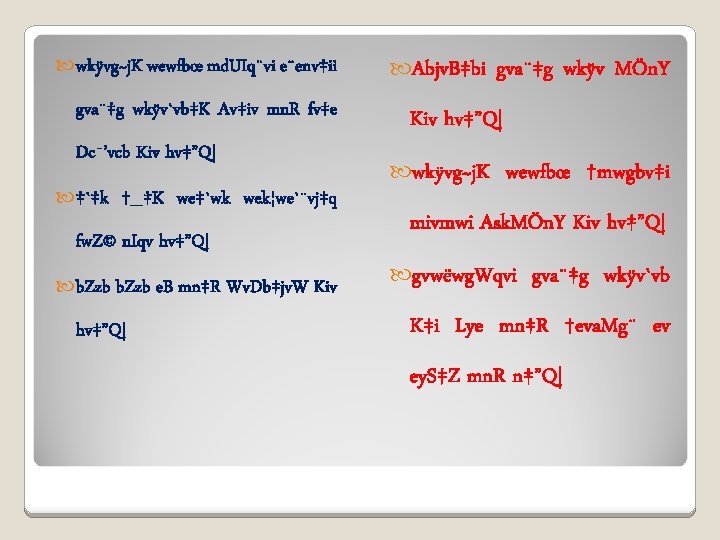 wkÿvg~j.K wewfbœ md.UIq¨vi e¨env‡ii
gva¨‡g wkÿv`vb‡K Av‡iv mn.R fv‡e
Dc¯’vcb Kiv hv‡”Q|
‡`‡k †_‡K we‡`wk wek¦we`¨vj‡q
fw.Z© n.Iqv hv‡”Q|
b.Zzb b.Zzb e.B mn‡R Wv.Db‡jv.W Kiv
hv‡”Q|
Abjv.B‡bi gva¨‡g wkÿv MÖn.Y
Kiv hv‡”Q|
wkÿvg~j.K wewfbœ †mwgbv‡i
mivmwi Ask.MÖn.Y Kiv hv‡”Q|
gvwëwg.Wqvi gva¨‡g wkÿv`vb
K‡i Lye mn‡R †eva.Mg¨ ev
ey.S‡Z mn.R n‡”Q|